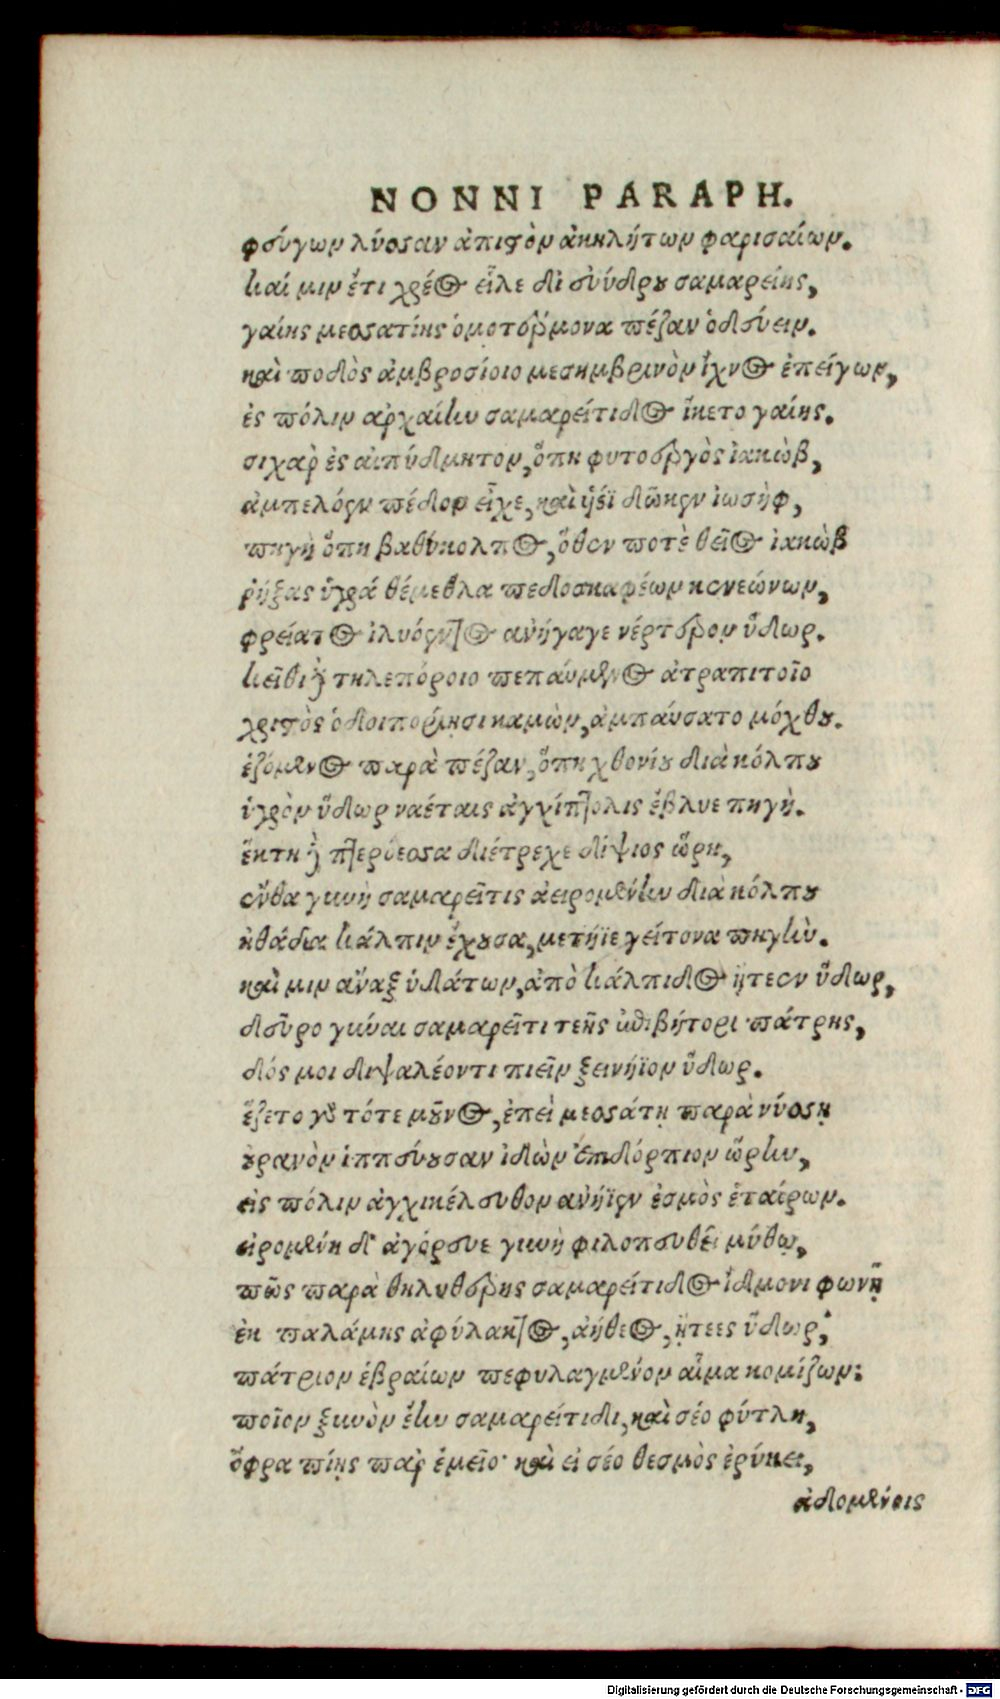 NONNI PARAPH.
φεύγων λύσσαν ἄπιστον ἀκηλήτων φαρισαίων.
καί μιν ἔτι χρέος εἷλε δι εὐύδρου σαμαρείης,
γαίης μεσσατίης ὁμοτέρμονα πέζαν ὁδεύειν.
καὶ ποδὸς ἀμβροσίοιο μεσημβρινὸν ἴχνος ἐπείγων,
ἐς πόλιν ἀρχαίην σαμαρείτιδος ἵκετο γαίης.
σιχὰρ ἐς αἰπύδμητον, ὅπη φυτοεργὸς ἰακὼβ,
ἀμπελόεν πέδον εἶχε, καὶ ᾗέϊ δῶκεν ἰωσὴφ,
πηγὴ ὅπη βαθύκολπος, ὅθεν ποτὲ θεῖος ἰακὼβ
ῥήξας ὑγρά θέμεθλα πεδοσκαφέων κενεώνων,
φρείατος ἰλυόεντος ἀνήγαγε νέρτερον ὕδωρ.
κεῖθι δὲ τηλεπόροιο πεπαυμένος ἀτραπιτοῖο
χριστὸς ὁδοιπορίῃσι καμὼν, ἀμπαύσατο μόχθου.
ἑζόμενος παρὰ πέζαν, ὅπη χθονίου διὰ κόλπου
ὑγρὸν ὕδωρ ναέταις ἀγχίπτολις ἔβλυε πηγὴ.
ἕκτη δὲ πτερόεσσα διέτρεχε δίψιος ὥρη,
ἔνθα γυνὴ σαμαρεῖτις ἀειρομένην διὰ κόλπου
ἠθάδα κάλπιν ἔχουσα, μετήϊε γείτονα πηγὴν.
καὶ μιν ἄναξ ὑδάτων, ἀπὸ κάλπιδος ᾔτεεν ὕδωρ,
δεῦρο γύναι σαμαρεῖτι τεῆς ἐπιβήτορι πάτρης,
δός μοι διψαλέοντι πιεῖν ξεινήϊον ὕδωρ.
ἕζετο γὰρ τότε μοῦνος, ἐπεὶ μεσσάτῃ παρὰ νύσσῃ
οὐρανὸν ἱππεύουσαν ἰδὼν ἐπιδόρπιον ὥρην,
εἰς πόλιν ἀγχικέλευθον ἀνήϊεν ἑσμὸς ἑταίρων.
εἰρομένη δ' ἀγόρευε γυνὴ φιλοπευθέϊ μύθῳ,
πῶς παρὰ θηλυτέρης σαμαρείτιδος ἴδμονι φωνῇ
ἐκ παλάμης ἀφύλακτος, ἀήθεος, ᾔτεες ὕδωρ,
πάτριον ἑβραίων πεφυλαγμένον αἷμα κομίζων;
ποῖον ξυνὸν ἔην σαμαρείτιδι, καὶ σέο φύτλη,
ὄφρα πίῃς παρ ἐμεῖο· καὶ εἰ σέο θεσμὸς ἐρύκει,
ἁδομένοις
Digitalisierung gefördert durch die Deutsche Forschungsgemeinschaft - DFG